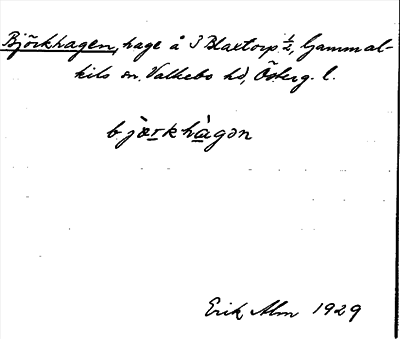 Björkhagen, hage å 3 Blaxtorp ½, Gammal-
kils sn. Valkebo hd, Österg. l.
bjærkhàgən
Erik Alm 1929